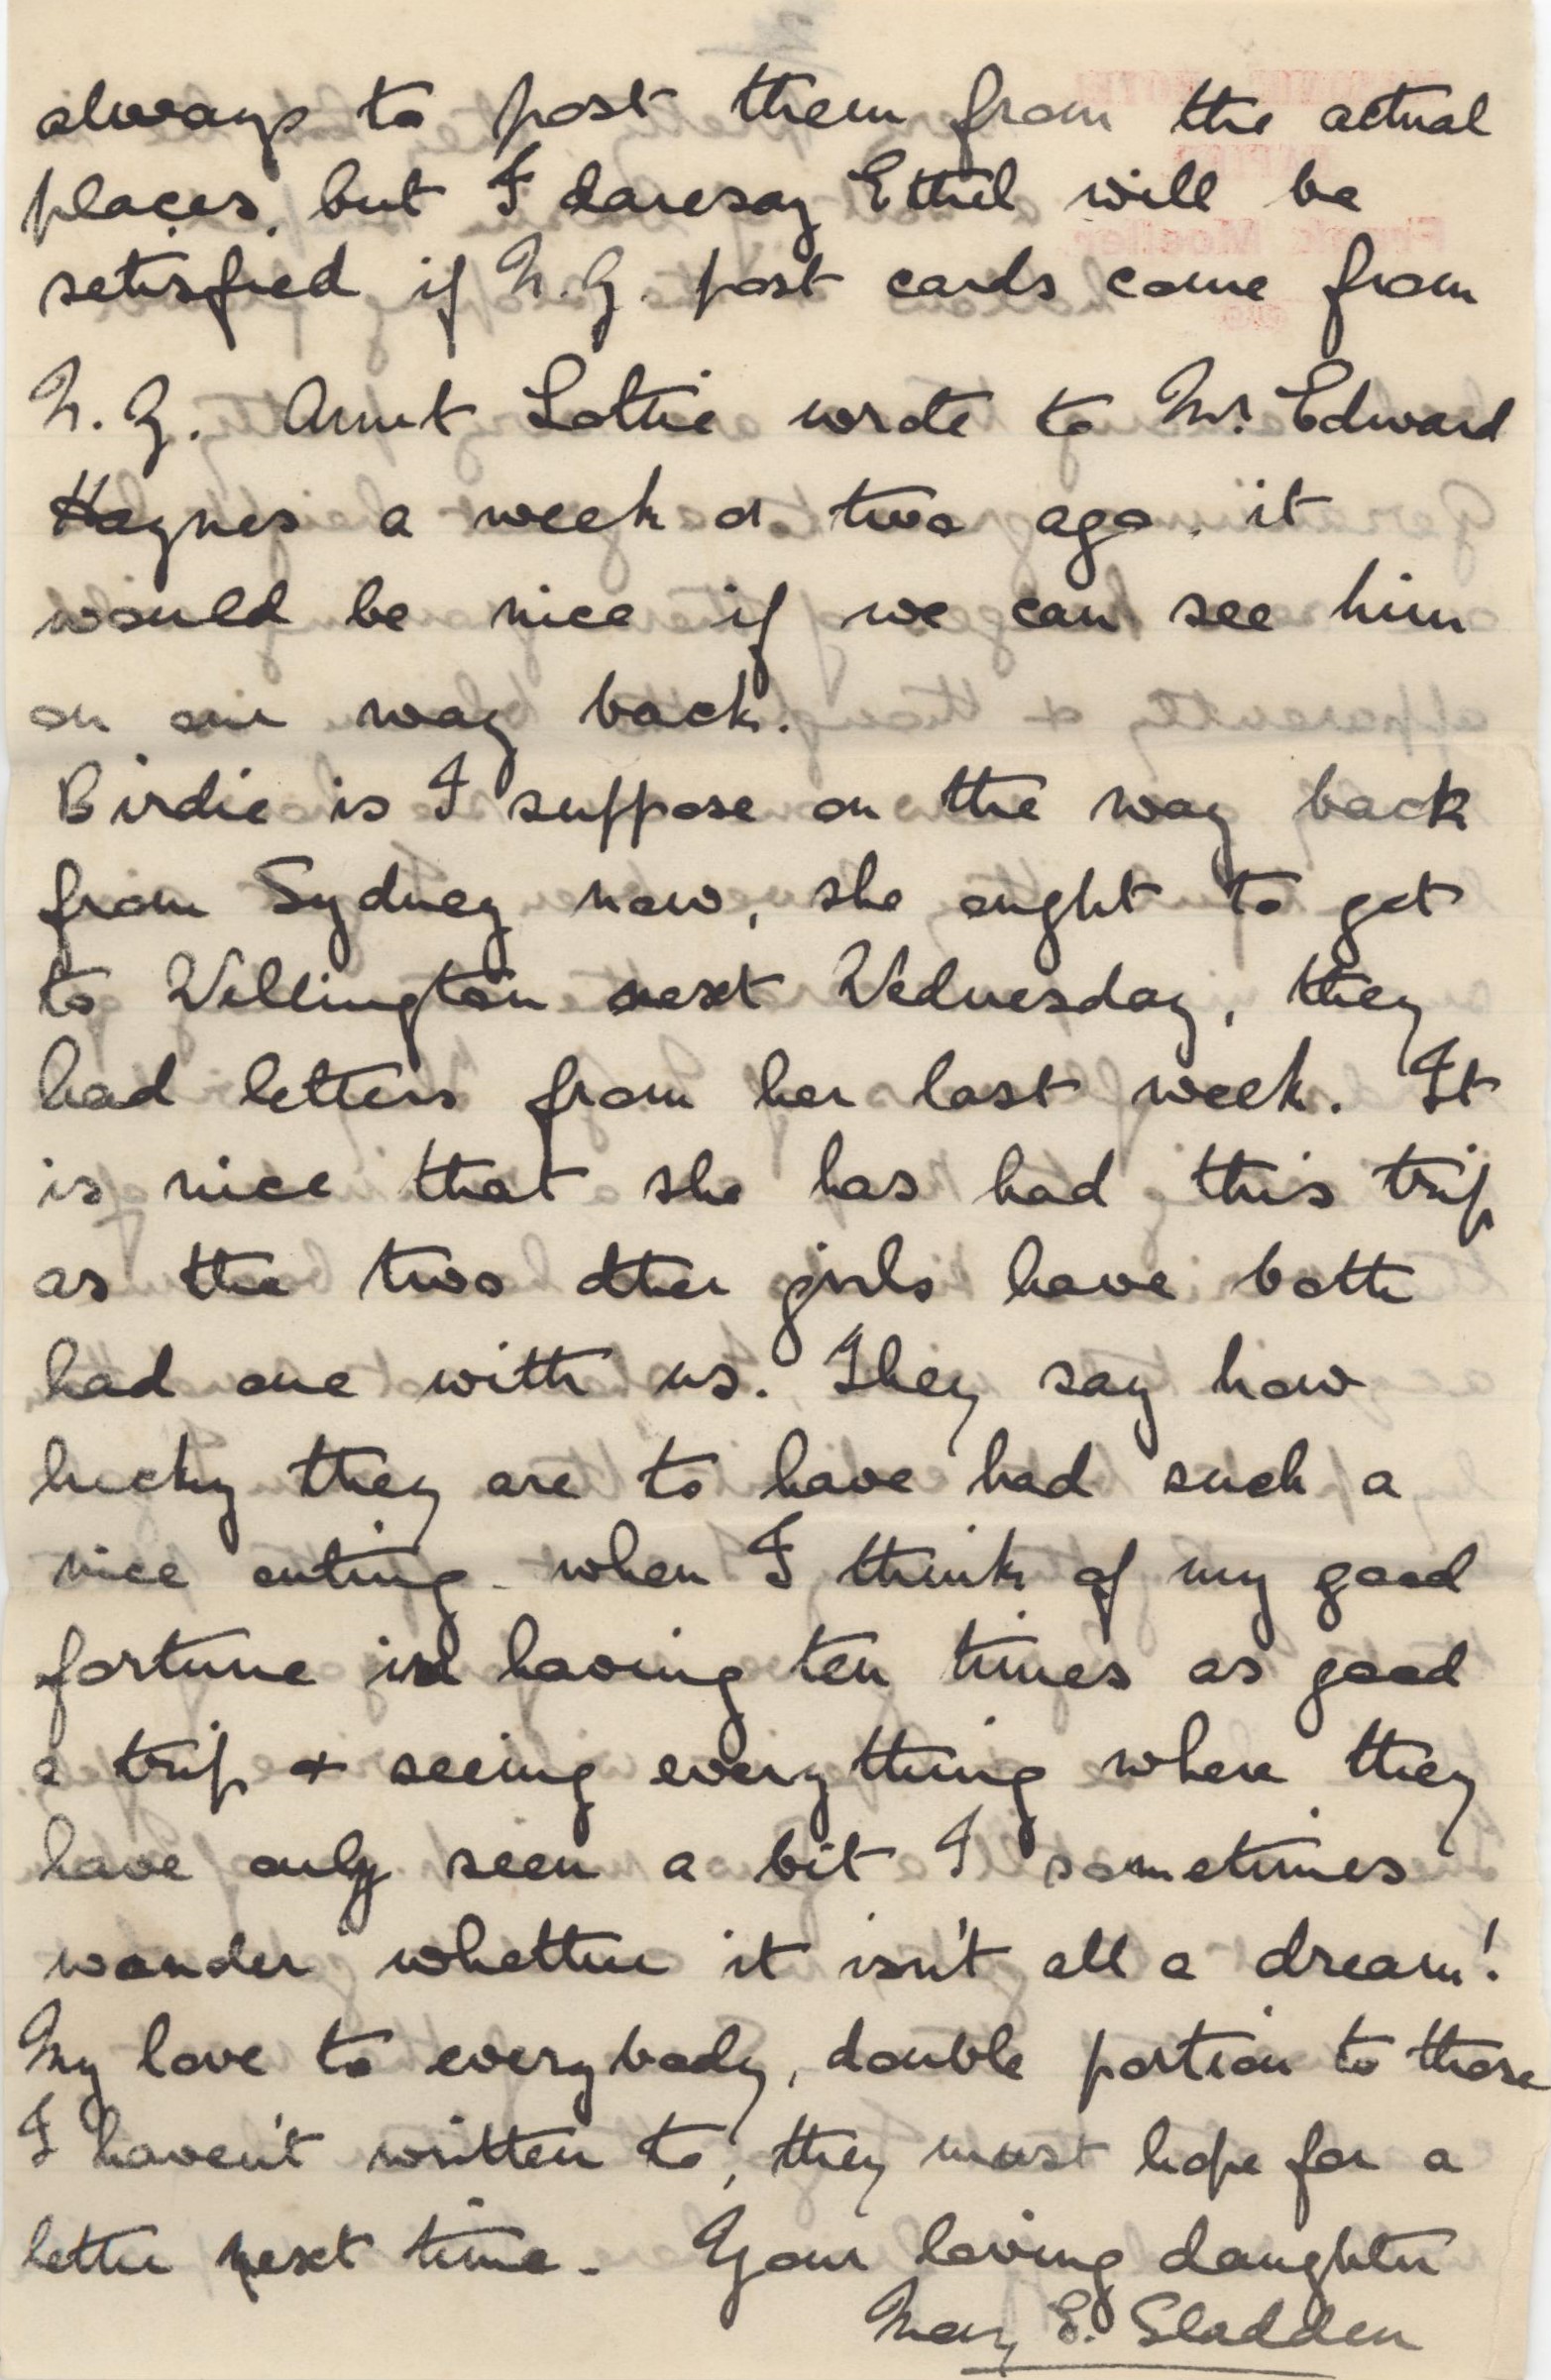 always to post them from the actual
places, but I daresay Ethel will be
satisfied if N.Z. post cards come from
N.Z. Aunt Lottie wrote to Mr. Edward
Haynes a week or two ago, it
would be nice if we can see him
on our way back.
Birdie is I suppose on the way back
from Sydney now, she ought to get
to Wellington next Wednesday, they
had letters from her last week. It
is nice that she has had this trip
as the two other girls have both
had one with us. They say how
lucky they are to have had such a
nice outing - when I think of my good
fortune in having ten times as good
a trip & seeing everything where they
have only seen a bit I sometimes
wonder whether it isn't all a dream!
My love to everybody, double portion to those
I haven't written to, they must hope for a
letter next time. Your loving daughter
Mary E. Sladden